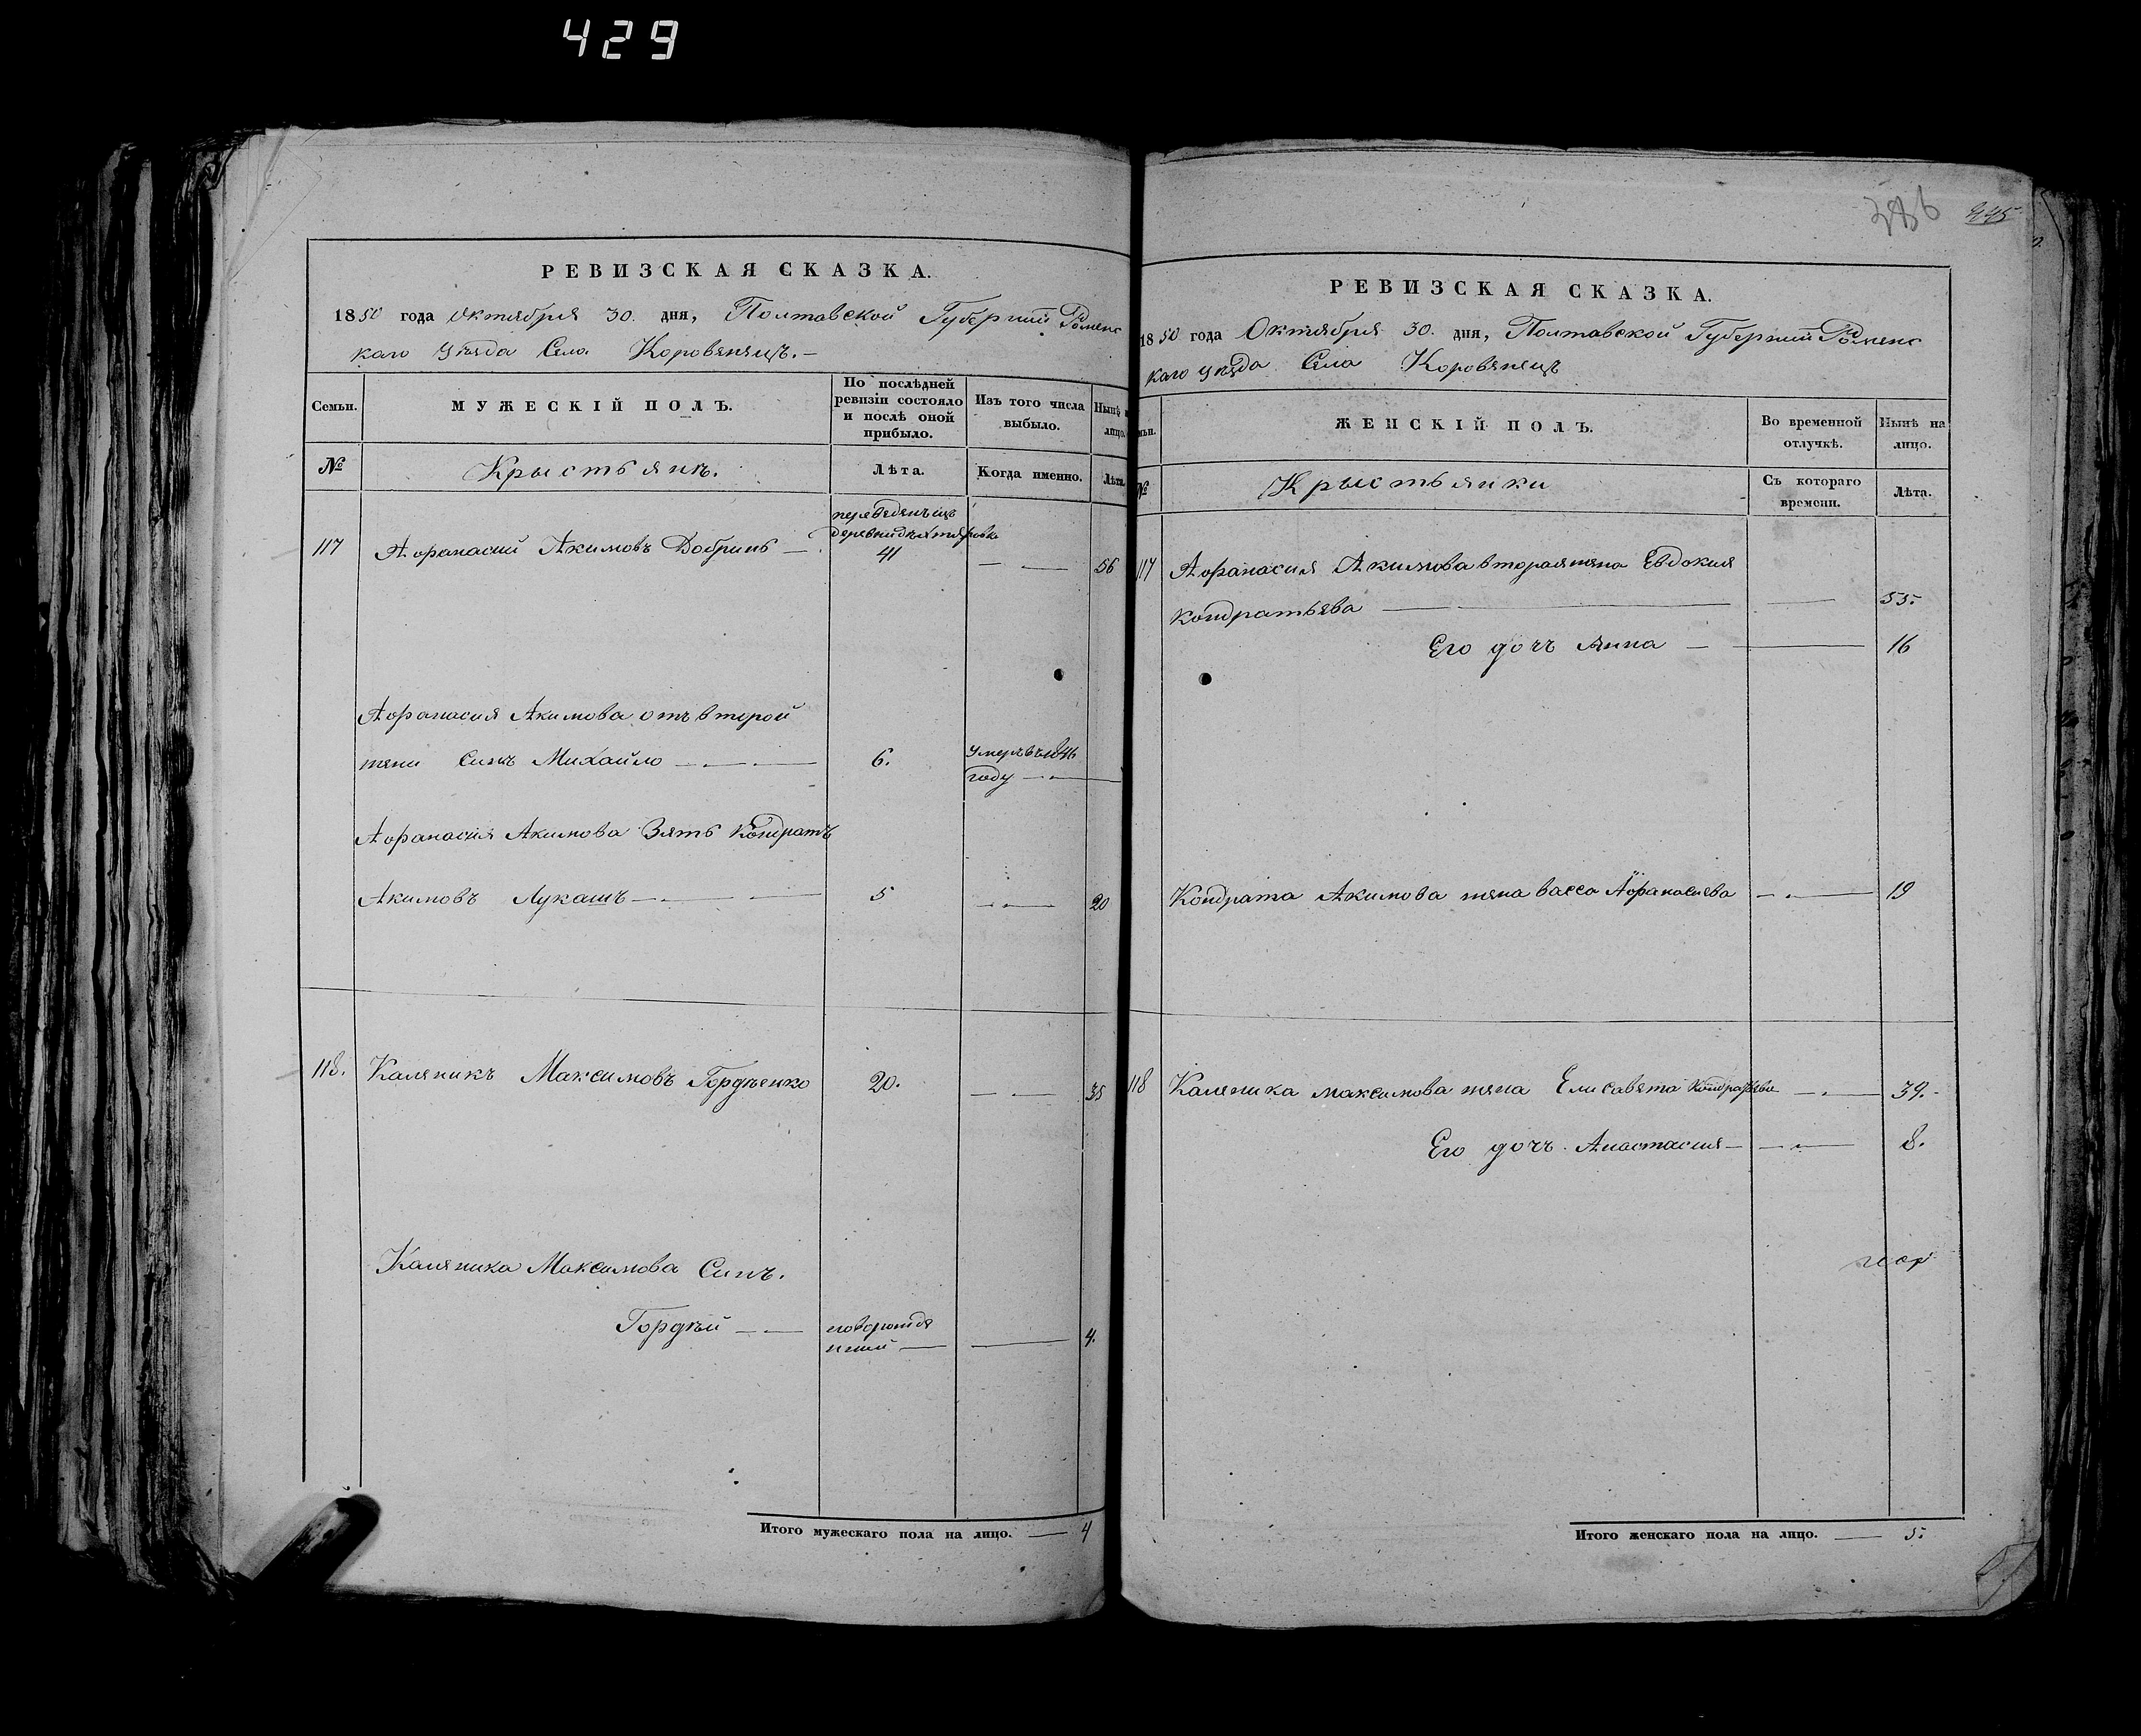 429
РЕВИЗСКАЯ СКАЗКА.
1850 года Октября 30. дня, Полтавской Губернии Роменс
каго Уѣзда Села Коровенецъ.
Семьи.
МУЖЕСКІЙ ПОЛЪ.
По послѣдней
ревизіи состояло
и послѣ оной
прибыло.
Изъ того числа
выбыло.
Нынѣ
лицо.
№
Крыстьянъ.
Лѣта.
Когда именно.
Лѣта.
переведенъ изъ
деревни
117 Афанасий Акимовъ Добринь 41 — 56
Афанасия Акимова отъ второй
жени Синъ Михайло 6. умеръ въ
году
Афанасия Акимова Зять Кондратъ
Акимовъ Лукашъ 5 — 20
118. Каленикъ Максимовъ Гордѣенко 20. — 35
Каленика Максимова Синъ.
Гордѣй — новорожде
нний — 4.
Итого мужескаго пола на лицо. — 4
386 445
РЕВИЗСКАЯ СКАЗКА.
1850 года Октября 30. дня, Полтавской Губернии Роменс
каго Уѣзда Села Коровенецъ
ЖЕНСКІЙ ПОЛЪ.
Во временной
отлучкѣ.
Нынѣ на
лицо.
№
Крыстьянки
Съ котораго
времени.
Лѣта.
117 Афанасия Акимова вторая жена Евдокия
Кондратьева — 55.
Его дочъ Анна — 16
Кондрата Акимова жена Васса Афанасиева — 19
118 Каленика максимова жена Елисавета Кондратьева — 39.
Его дочъ Анастасия — 8.
Итого женскаго пола на лицо. — 5.